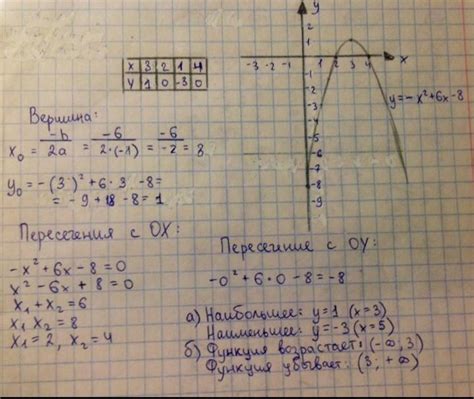 y
2
1
-3 -2 -1 1 2 3 4 x
-1
-2
-3
-4
-5
-6
-7
-8
-9
y=-x²+6x-8
x 3 2 1 4
y 1 0 -3 0
Вершина:
x₀ = -b/2a = -6/2·(-1) = -6/-2 = 8
y₀ = -(3)²+6·3-8=
= -9+18-8=1
Пересегения с OX:
-x²+6x-8=0
x²-6x+8=0
x₁+x₂=6
x₁ x₂=8
x₁=2, x₂=4
Пересегиние с OY:
-0²+6·0-8=-8
а) Наибольшее: y=1 (x=3)
Наименьшее: y=-3 (x=5)
б) Функция возрастает: (-∞; 3)
Функция убывает: (3; +∞)